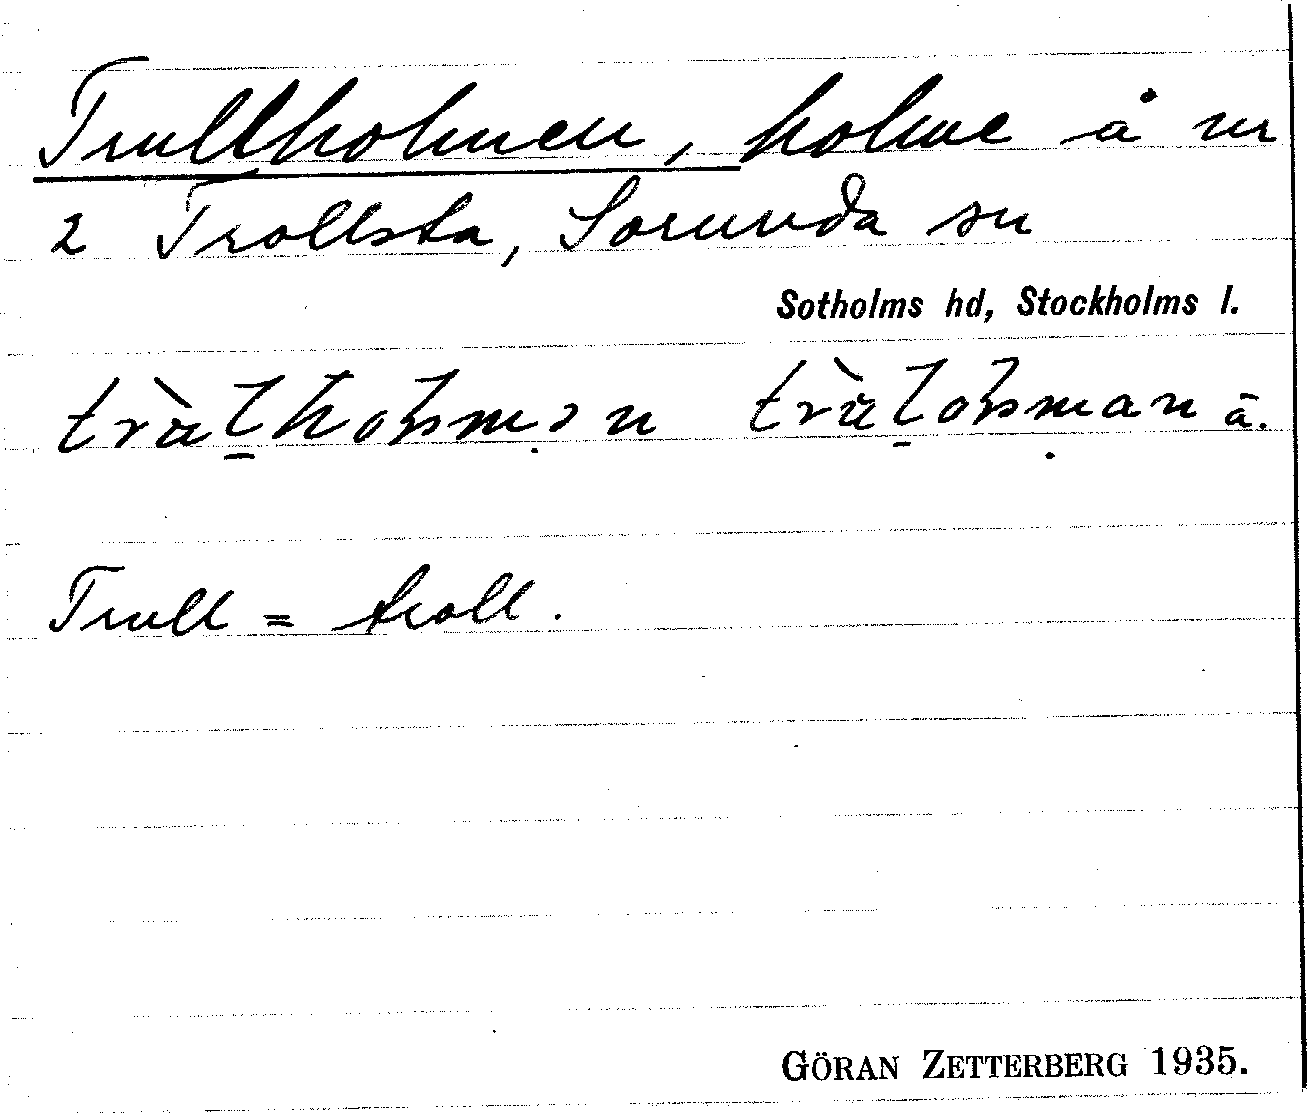 Trullholmen, holme å nr
2 Trollsta, Sorunda sn
Sotholms hd, Stockholms l.
Trull = troll.
GÖRAN ZETTERBERG 1935.